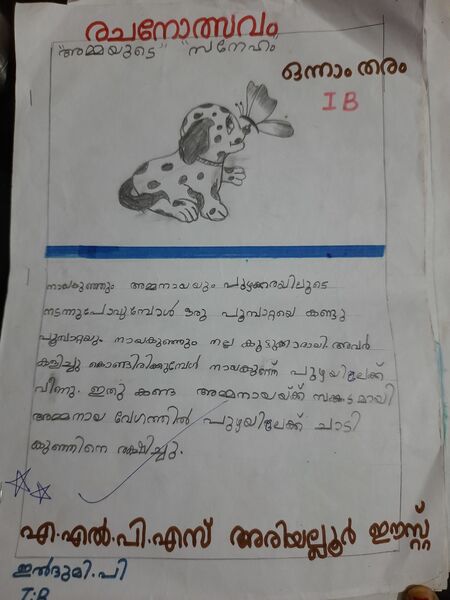 രചനോത്സവം
"അമ്മയുടെ" "സനേഹം"
ഒന്നാം തരം
I B
നായകുഞ്ഞും അമ്മനായയും പുഴക്കരയിലൂടെ
നടന്നുപോവുമ്പോൾ ഒരു പൂമ്പാറ്റയെ കണ്ടു
പൂമ്പാറ്റയും നായകുഞ്ഞും നല്ല കൂട്ടുക്കാരായി. അവർ
കളിച്ചു കൊണ്ടിരിക്കുമ്പേൾ നായകുഞ്ഞ് പുഴയിലേക്ക്
വീണു. ഇതു കണ്ട അമ്മനായയ്ക്ക് സങ്കടമായി
അമ്മനായ വേഗത്തിൽ പുഴയിലേക്ക് ചാടി
കുഞ്ഞിനെ രക്ഷിച്ചു.
എ.എൽ.പി.എസ് അരിയല്ലൂർ ഈസ്റ്റ്
ഇൽദുമി.പി
I.B